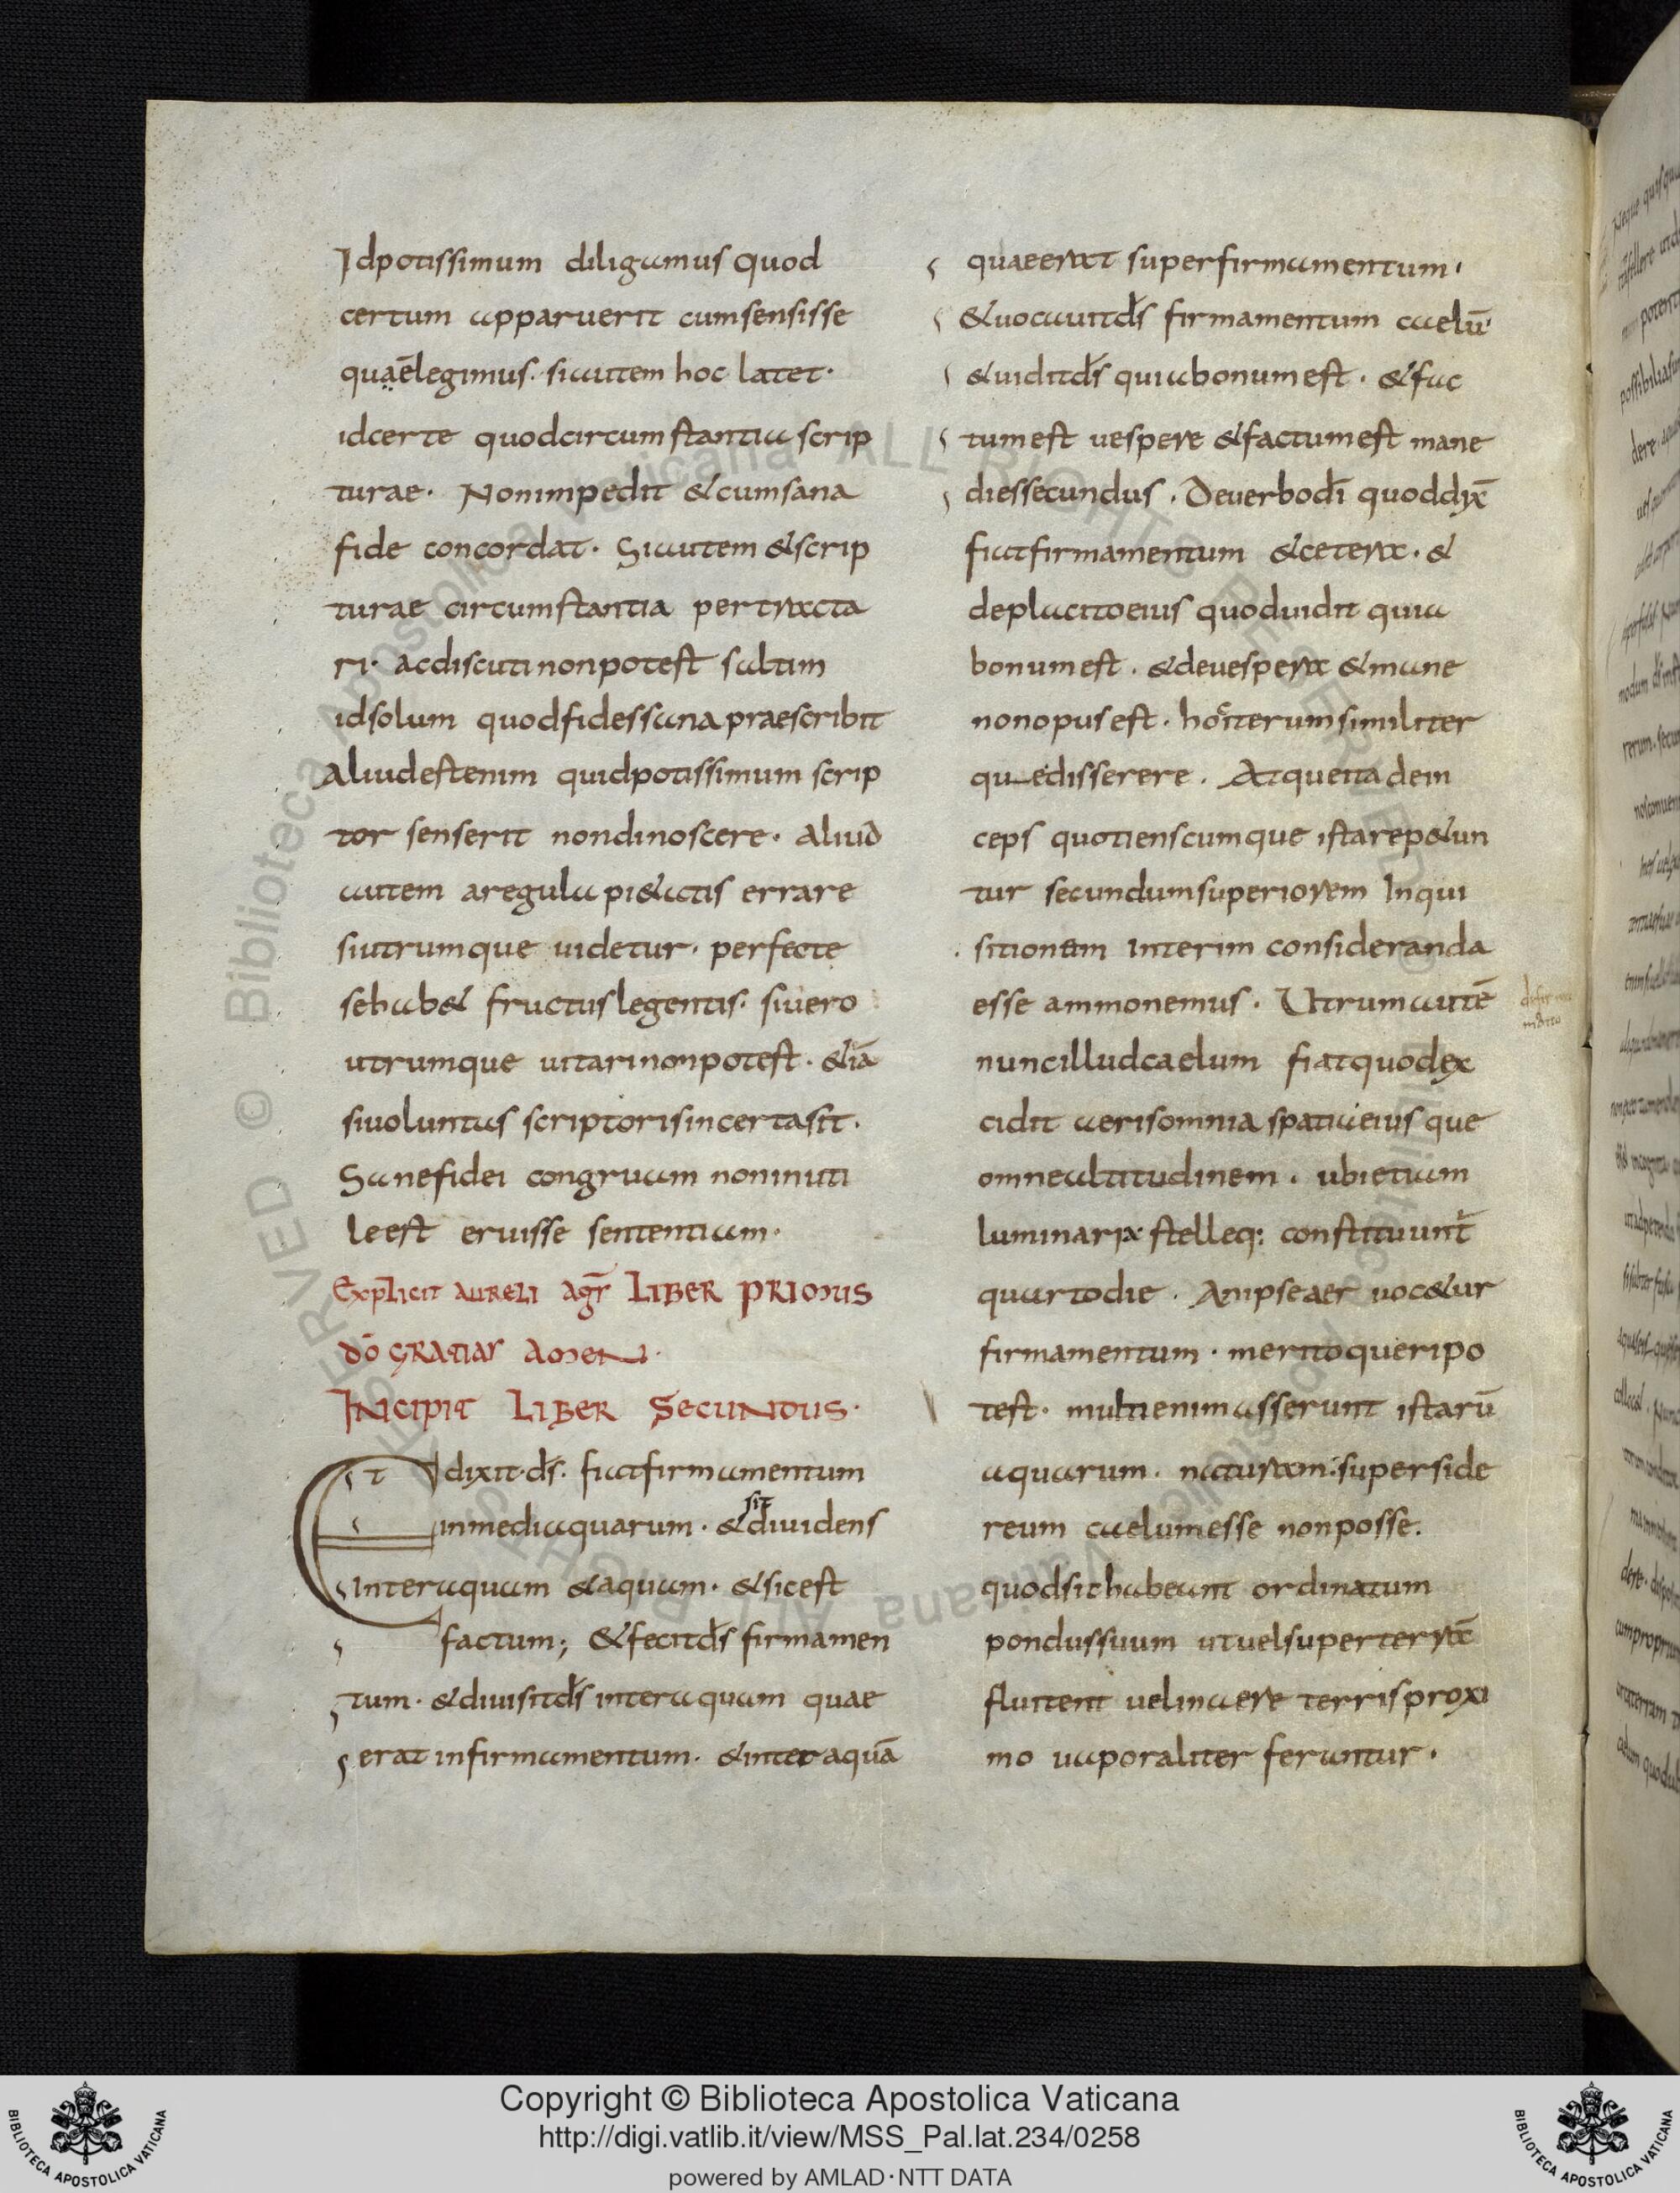 Idpotissimum diligamus quod
certum apparuerit cumsensisse
quaēlegimus. siautem hoc latet.
idcerte quodcircumstantia scrip
turae. Nonimpedit &cumsana
fide concordat. Siautem &scrip
turae circumstantia pertracta
ri. acdiscutinonpotest saltim
idsolum quodfidessana praescribit
Aliudestenim quidpotissimum scrip
tor senserit nondinoscere. aliud
autem aregula pi&atis errare
siutrumque uidetur. perfecte
sehab& fructuslegentis. siuero
utrumque uitarinonpotest. &iā
siuoluntas scriptorisincertasit.
Sanefidei congruam noninuti
leest eruisse sententiam.
Explicit aureli agr̄ LIBER PRIMUS
dō gratias amen.
INCIPIT LIBER SECUNDUS.
Et dixit.ds̄. fiatfirmamentum
inmediaquarum. &sitdiuidens
interaquam &aquam. &sicest
factum; &fecitds̄ firmamen
tum. &diuisitds̄ interaquam quae
erat infirmamentum. &inter aquā
quaeerat superfirmamentum.
&uocauitds̄ firmamentum caelū.
&uiditds̄ quiabonumest. &fac
tumest uespere &factumest mane
diessecundus. Deuerbodī quoddix̄
fiatfirmamentum &cetera. &
deplacitoeius quoduidit quia
bonumest. &deuespera &mane
nonopusest. hociterumsimiliter
quaedisserere. Atqueita dein
ceps quotienscumque istarep&un
tur secundumsuperiorem Inqui
sitionem interim consideranda
esse ammonemus. Utrumautē
nuncilludcaelum fiatquodex
cidit aerisomnia spatiaeius que
omnealtitudinem. ubietiam
luminaria stelleq: constituunt̄
quartodie. Anipseaer uoc&ur
firmamentum. meritoqueripo
test. multienimasserunt istarū
aquarum. naturam:superside
reum caelumesse nonposse.
quodsichabeant ordinatum
pondussuum utuelsuperterrā
fluitent uelinaere terrisproxi
mo uaporaliter feruntur.
Copyright © Biblioteca Apostolica Vaticana
http://digi.vatlib.it/view/MSS_Pal.lat.234/0258
powered by AMLAD·NTT DATA
BIBLIOTECA APOSTOLICA VATICANA
BIBLIOTECA APOSTOLICA VATICANA